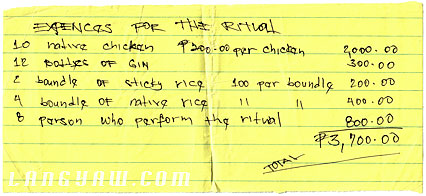 EXPENCES FOR THE RITUAL
10 native chicken ₱200.00 per chicken 2,000.00
12 Bottles of GIN 300.00
2 boundle of sticky rice 100 per boundle 200.00
4 boundle of native rice " " 400.00
8 parson who perform the ritual 800.00
₱3,700.00
TOTAL
LANGYAW.COM